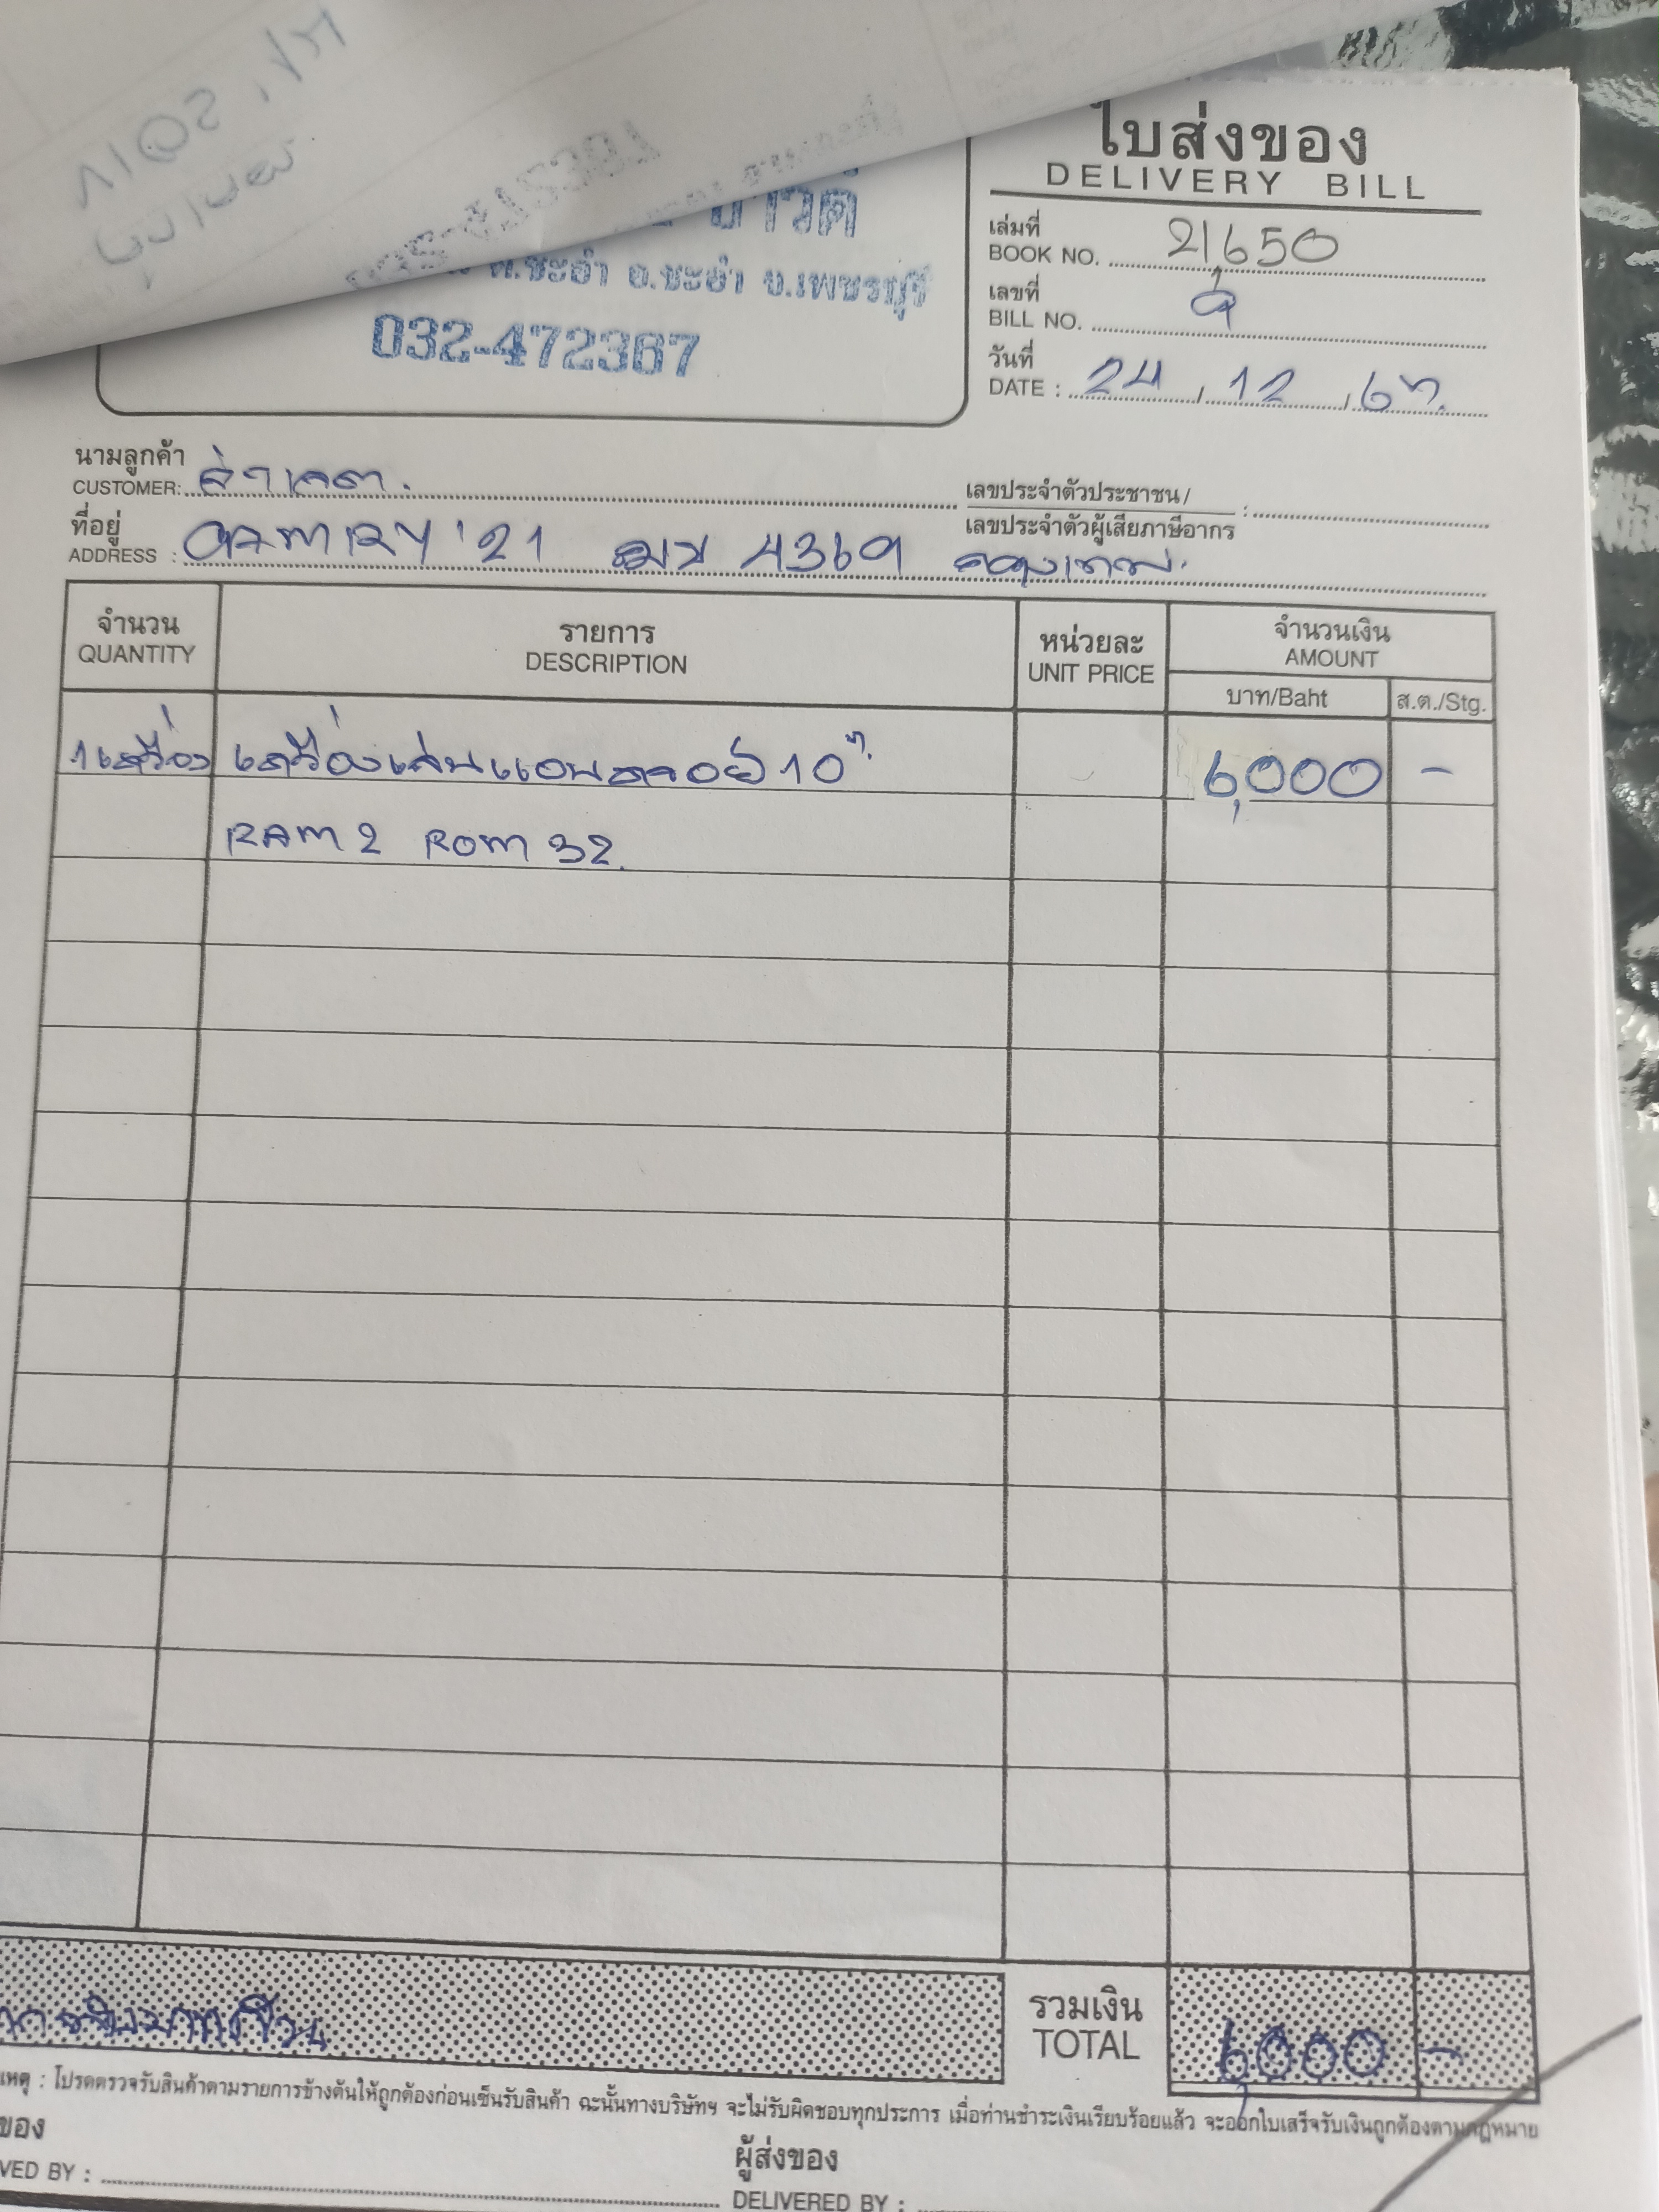 ใบส่งของ
DELIVERY BILL
ซาวด์
ต.ชะอำ อ.ชะอำ จ.เพชรบุรี
032-472367
เล่มที่
BOOK NO. 21650
เลขที่
BILL NO. 9
วันที่
DATE : 24 / 12 / 67
นามลูกค้า
CUSTOMER:
เลขประจำตัวประชาชน/
เลขประจำตัวผู้เสียภาษีอากร :
ที่อยู่
ADDRESS : '21 4369 กรุงเทพ
จำนวน
QUANTITY
รายการ
DESCRIPTION
หน่วยละ
UNIT PRICE
จำนวนเงิน
AMOUNT
บาท/Baht
ส.ต./Stg.
1 เครื่อง เครื่องเล่นแอนดรอย 10" 6,000 -
RAM 2 ROM 32
รวมเงิน
TOTAL
6,000 -
เหตุ : โปรดตรวจรับสินค้าตามรายการข้างต้นให้ถูกต้องก่อนเซ็นรับสินค้า ฉะนั้นทางบริษัทฯ จะไม่รับผิดชอบทุกประการ เมื่อท่านชำระเงินเรียบร้อยแล้ว จะออกใบเสร็จรับเงินถูกต้องตามกฎหมาย
ของ
VED BY :
ผู้ส่งของ
DELIVERED BY :